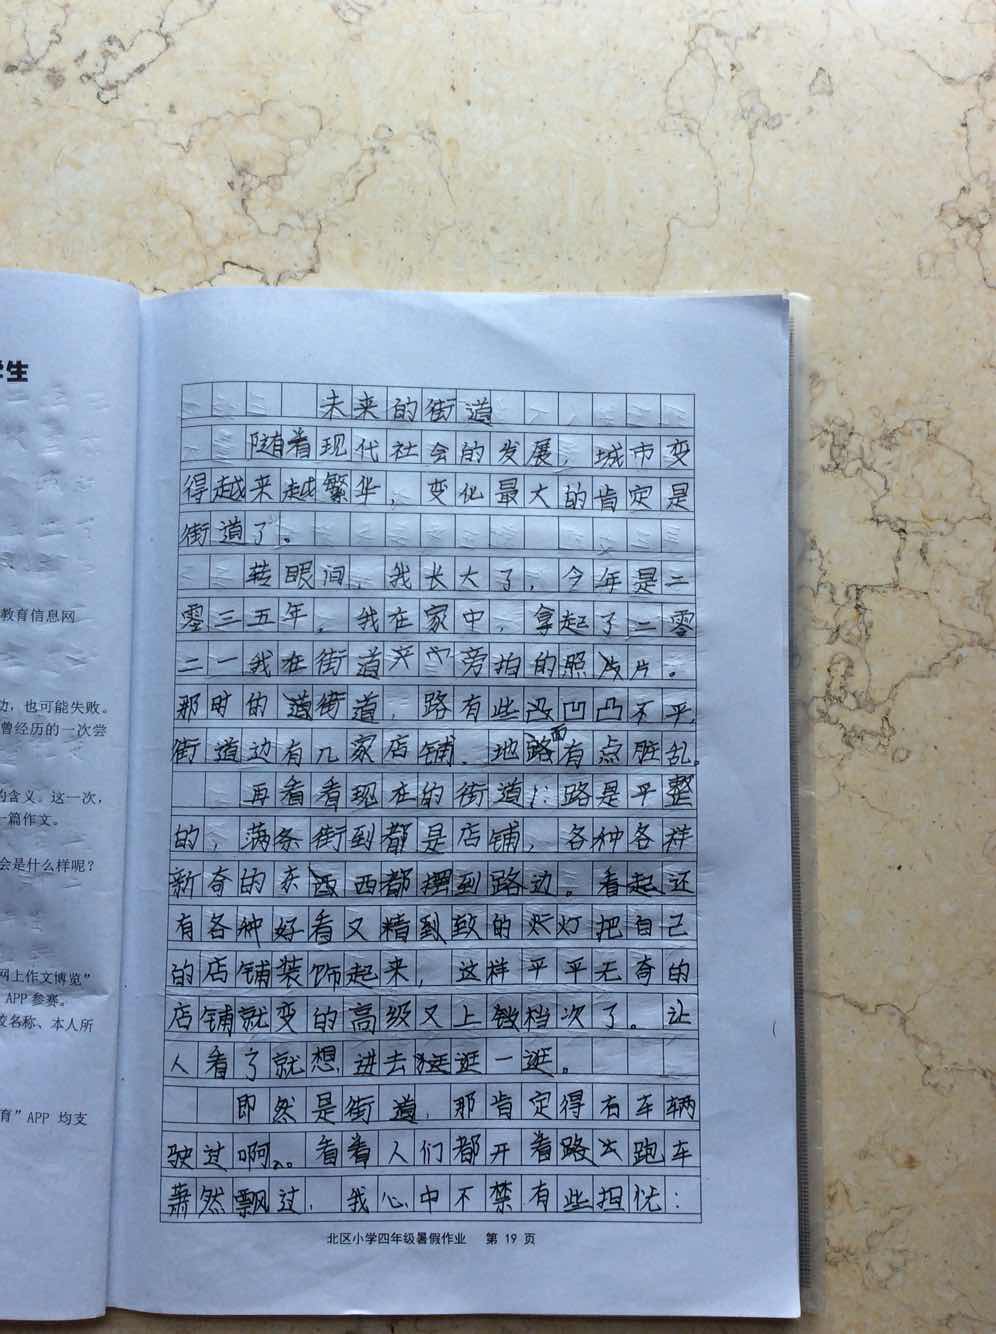 学生
教育信息网
功，也可能失败。
曾经历的一次尝
的含义。这一次，
一篇作文。
会是什么样呢？
网上作文博览”
APP参赛。
校名称、本人所
育”APP 均支
未来的街道
随着现代社会的发展，城市变
得越来越繁华，变化最大的肯定是
街道了。
转眼间，我长大了，今年是二
零三五年。我在家中，拿起了二零
二一我在街道旁拍的照片。
那时的街道，路有些凹凸不平，
街道边有几家店铺、地面有点脏乱。
再看看现在的街道：路是平整
的，满条街到都是店铺，各种各样
新奇的东西都摆到路边。看起还
有各种好看又精致的灯把自己
的店铺装饰起来，这样平平无奇的
店铺就变的高级又上档次了。让
人看了就想进去逛一逛。
即然是街道，那肯定得有车辆
驶过啊。看着人们都开着路去跑车
萧然飘过，我心中不禁有些担忧：
北区小学四年级暑假作业 第 19 页